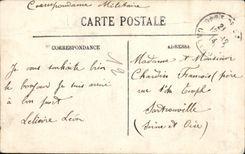 Correspondance Militaire
CARTE POSTALE
CORRESPONDANCE
ADRESSE
Je vous souhaite bien
le bonjour je suis arrivé
à bon port
Letiaire Léon
Madame et Monsieur
Chardin François père
rue d'
Sartrouville
(Seine et Oise)